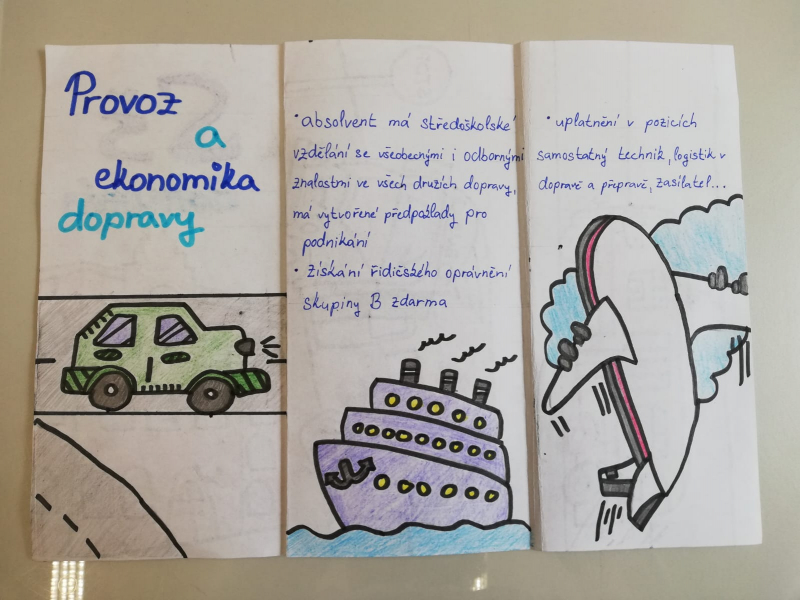 Provoz
a
ekonomika
dopravy
• absolvent má středoškolské
vzdělání se všeobecnými i odbornými
znalostmi ve všech druzích dopravy,
má vytvořené předpoklady pro
podnikání
• získání řidičského oprávnění
skupiny B zdarma
• uplatnění v pozicích
samostatný technik, logistik v
dopravě a přepravě, zasílatel...